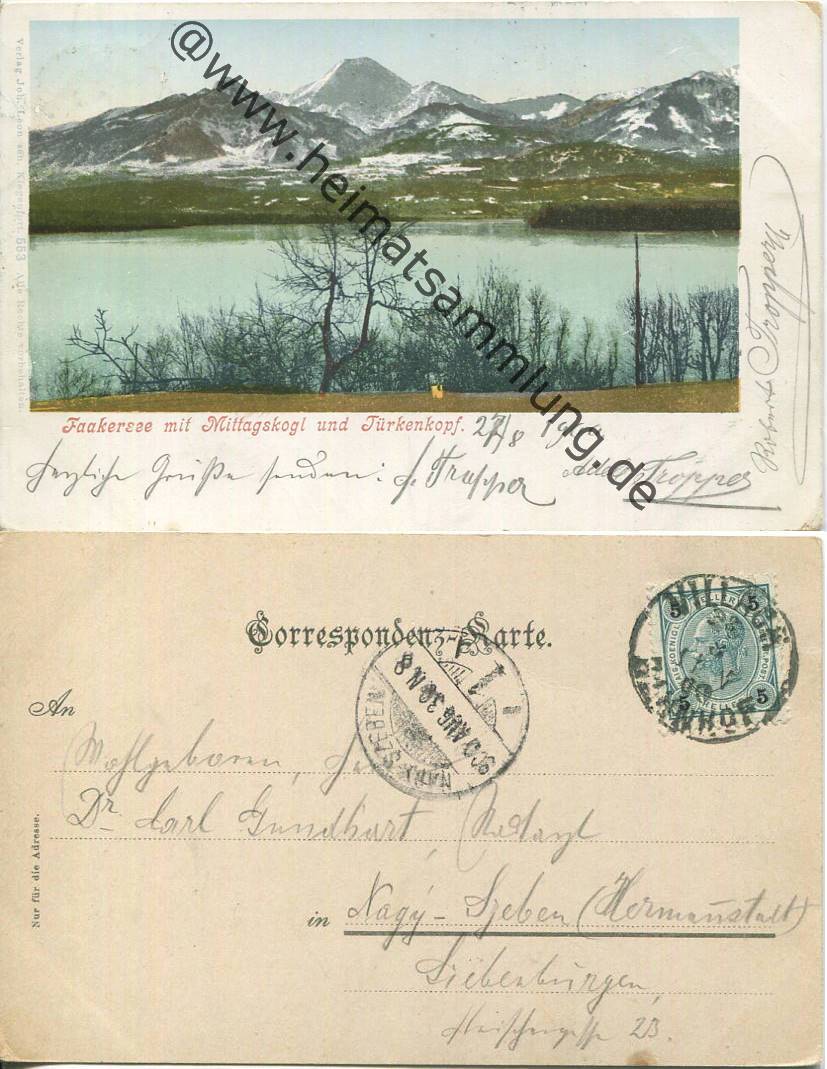 Verlag Joh. Leon sen. Klagenfurt. 553 Alle Rechte vorbehalten.
@www.heimatsammlung.de
Faakersee mit Mittagskogl und Türkenkopf.
27/8
Herzliche Grüße senden:
Tropper
Robert Tropper
Correspondenz-Karte.
5 5
5 5
NAGY-SZEBEN
900 AUG 30 N 8
An
Wohlgeboren,
Dr. Carl Gundhart,
in Nagy-Szeben (Hermannstadt)
Siebenbürgen,
Fleischergasse 23.
Nur für die Adresse.